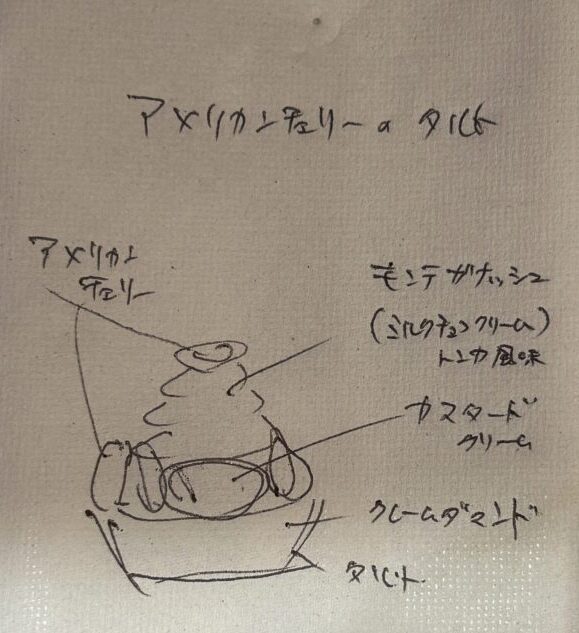 アメリカンチェリーの タルト
アメリカン
チェリー
モンテガナッシュ
(ミルクチョコクリーム)
トンカ風味
カスタード
クリーム
クレームダマンド
タルト